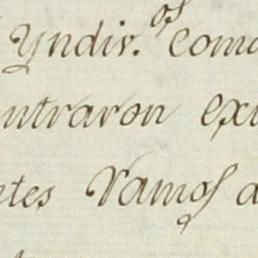 Yndiv.os Com
ntraron ex
etes Ramos d